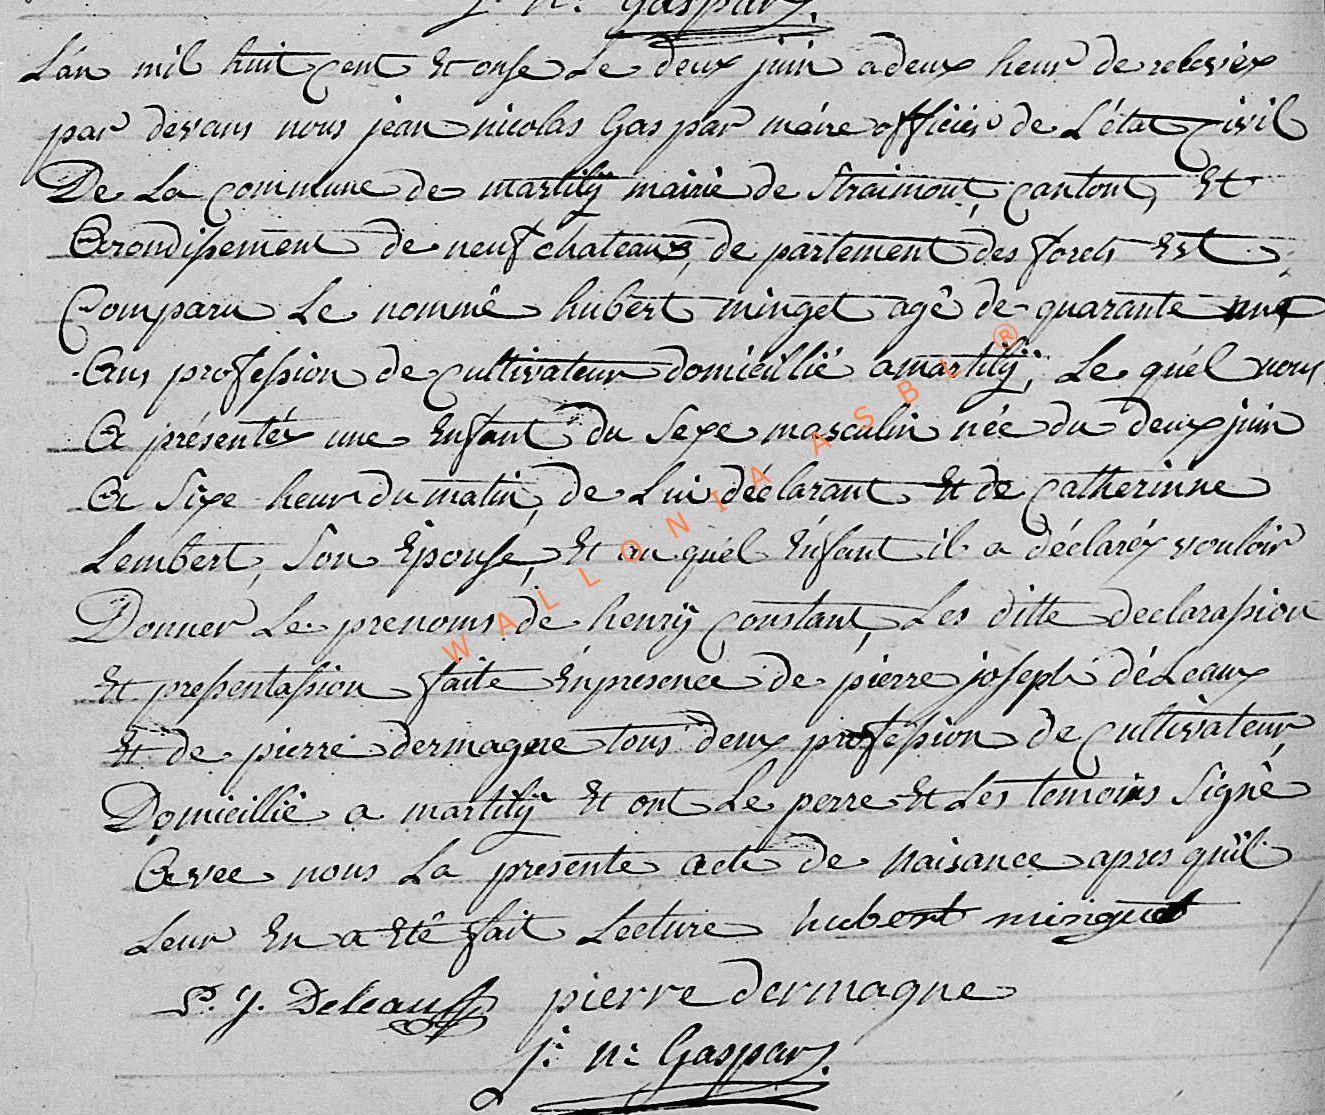 J. N. Gaspar.
L'an mil huit cent Et onse Le deux juin a deux heur de relevéex
par devans nous jean nicolas Gaspar maire officier de L'état civil
De La commune de martilÿ mairie de Straimont, cantont, Et
Arondissement de neufchateaux, de partement des forets Est
Comparu Le nommé hubert minget agé de quarante une
Ans profession de cultivateur domicillié a martilÿ, Le quél nous
A présentéx une Enfant du Sexe masculin née du deux juin
A Sixe heur du matin, de Lui déclarant Et de catherinne
Lembert, Son Epouse, Et au quél Enfant il a déclaréx vouloir
Donner Le prenoms de henrÿ constant, Les ditte declarassion
Et pressentassion faite Enpresence de pierre joseph déLeaux
Et de pierre dermagne tous deux profession de cultivateur,
Domicillié a martilÿ Et ont Le perre Et Les temoins Signé
Avec nous La presente acte de naisance apres qu'il
Leur En a Eté fait Lecture hubert minguet
P. J. Deleaux pierre dermagne
J: N: Gaspar.
WALLONIA ASBL ®